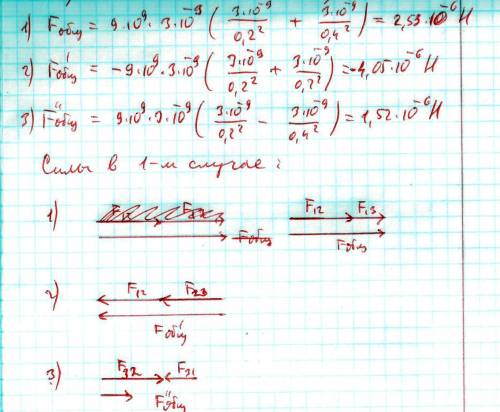 1) Fобщ = 9·10⁹·3·10⁻⁹ ( 3·10⁻⁹/0,2² + 3·10⁻⁹/0,4² ) = 2,53·10⁻⁶ Н
2) F'общ = -9·10⁹·3·10⁻⁹ ( 3·10⁻⁹/0,2² + 3·10⁻⁹/0,2² ) = -4,05·10⁻⁶ Н
3) F''общ = 9·10⁹·3·10⁻⁹ ( 3·10⁻⁹/0,2² - 3·10⁻⁹/0,4² ) = 1,52·10⁻⁶ Н
Силы в 1-м случае:
1) Fобщ F₁₂ F₁₃
Fобщ
2) F₁₂ F₂₃
F'общ
3) F₃₂ F₃₁
F''общ